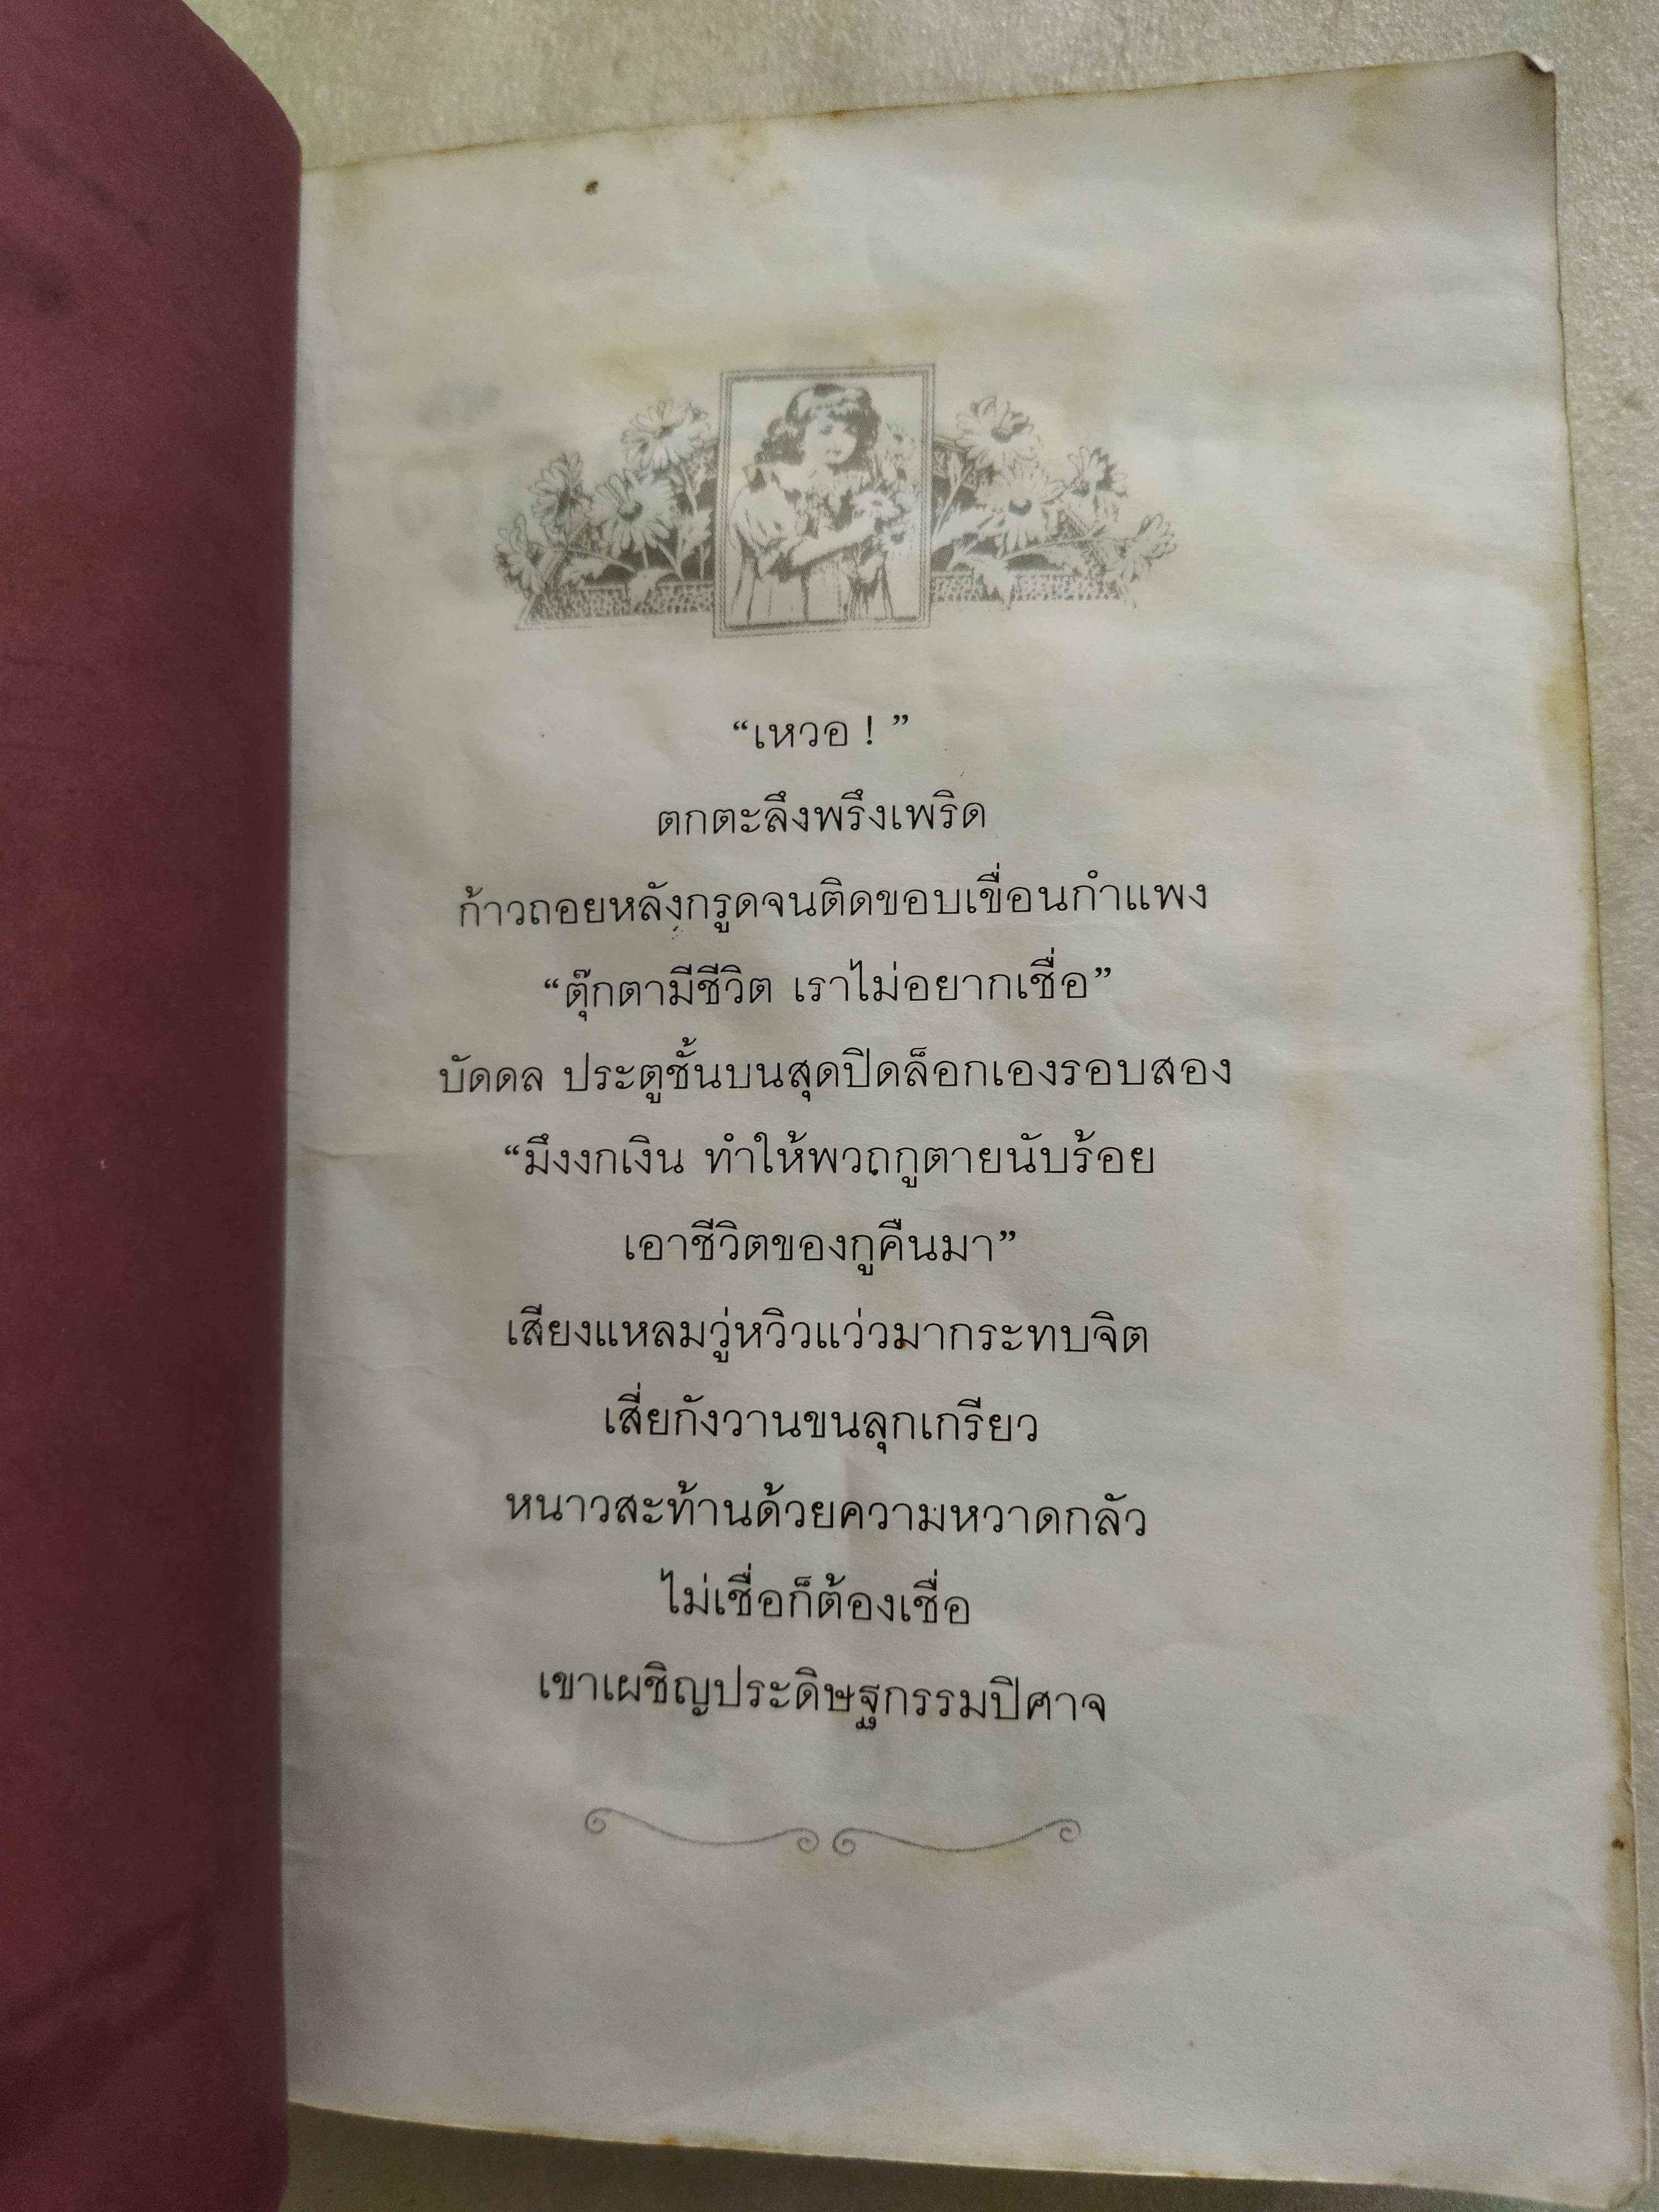 “เหวอ ! ”
ตกตะลึงพรึงเพริด
ก้าวถอยหลังกรูดจนติดขอบเขื่อนกำแพง
“ตุ๊กตามีชีวิต เราไม่อยากเชื่อ”
บัดดล ประตูชั้นบนสุดปิดล็อกเองรอบสอง
“มึงงกเงิน ทำให้พวกกูตายนับร้อย
เอาชีวิตของกูคืนมา”
เสียงแหลมวู่หวิวแว่วมากระทบจิต
เสี่ยกังวานขนลุกเกรียว
หนาวสะท้านด้วยความหวาดกลัว
ไม่เชื่อก็ต้องเชื่อ
เขาเผชิญประดิษฐกรรมปิศาจ